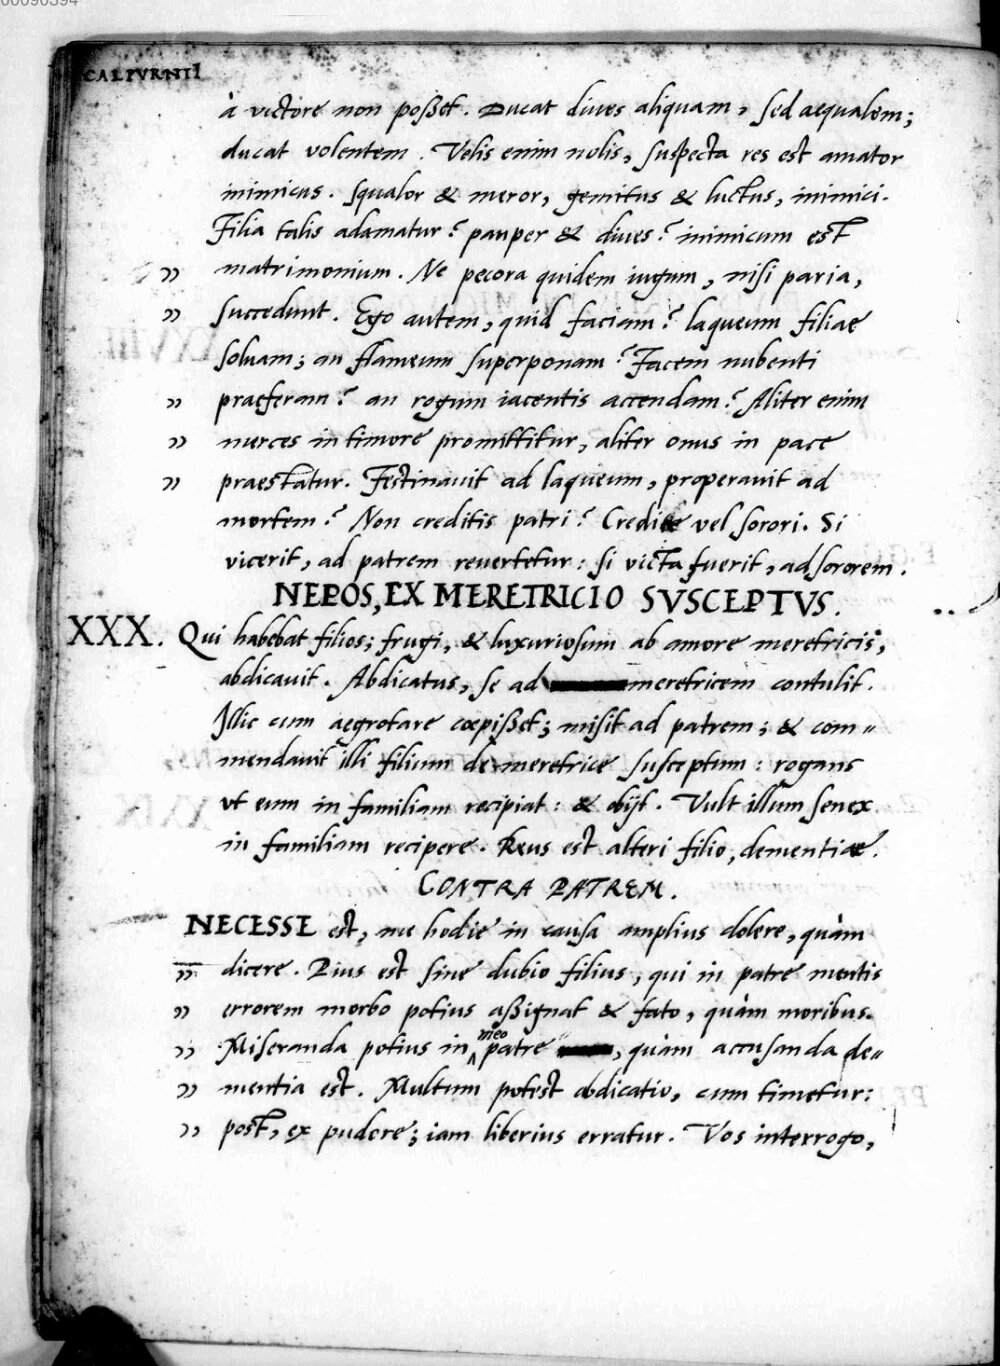 00090394
CALPVRNII
à victore non poßet. Ducat diues aliquam, sed aequalem;
ducat volentem. Velis enim nolis, suspecta res est amator
inimicus. Squalor & meror, gemitus & luctus, inimici.
Filia talis adamatur? pauper & diues? inimicum est
„ matrimonium. Ne pecora quidem iugum, nisi paria,
„ succedunt. Ego autem, quid faciam? laqueum filiae
soluam; an flameum superponam? Facem nubenti
„ praeferam? an rogum iacentis accendam? Aliter enim
„ merces in timore promittitur, aliter onus in pace
„ praestatur. Festinauit ad laqueum, properauit ad
mortem? Non creditis patri? Credite vel sorori. Si
vicerit, ad patrem reuertetur: si victa fuerit, ad sororem.
NEPOS, EX MERETRICIO SVSCEPTVS.
XXX. Qui habebat filios; frugi, & luxuriosum ab amore meretricis,
abdicauit. Abdicatus, se ad meretricem contulit.
Illic cum aegrotare cœpißet; misit ad patrem; & com„
mendauit illi filium de meretrice susceptum: rogans
vt eum in familiam recipiat: & obijt. Vult illum senex
in familiam recipere. Reus est alteri filio, dementiae.
CONTRA PATREM.
NECESSE est, me hodie in causa amplius dolere, quàm
„ dicere. Pius est sine dubio filius, qui in patre mentis
„ errorem morbo potius aßignat & fato, quàm moribus.
„ Miseranda potius in meo patre, quàm accusanda de„
„ mentia est. Multum potest abdicatio, cum timetur:
„ post, ex pudore; iam liberius erratur. Vos interrogo,